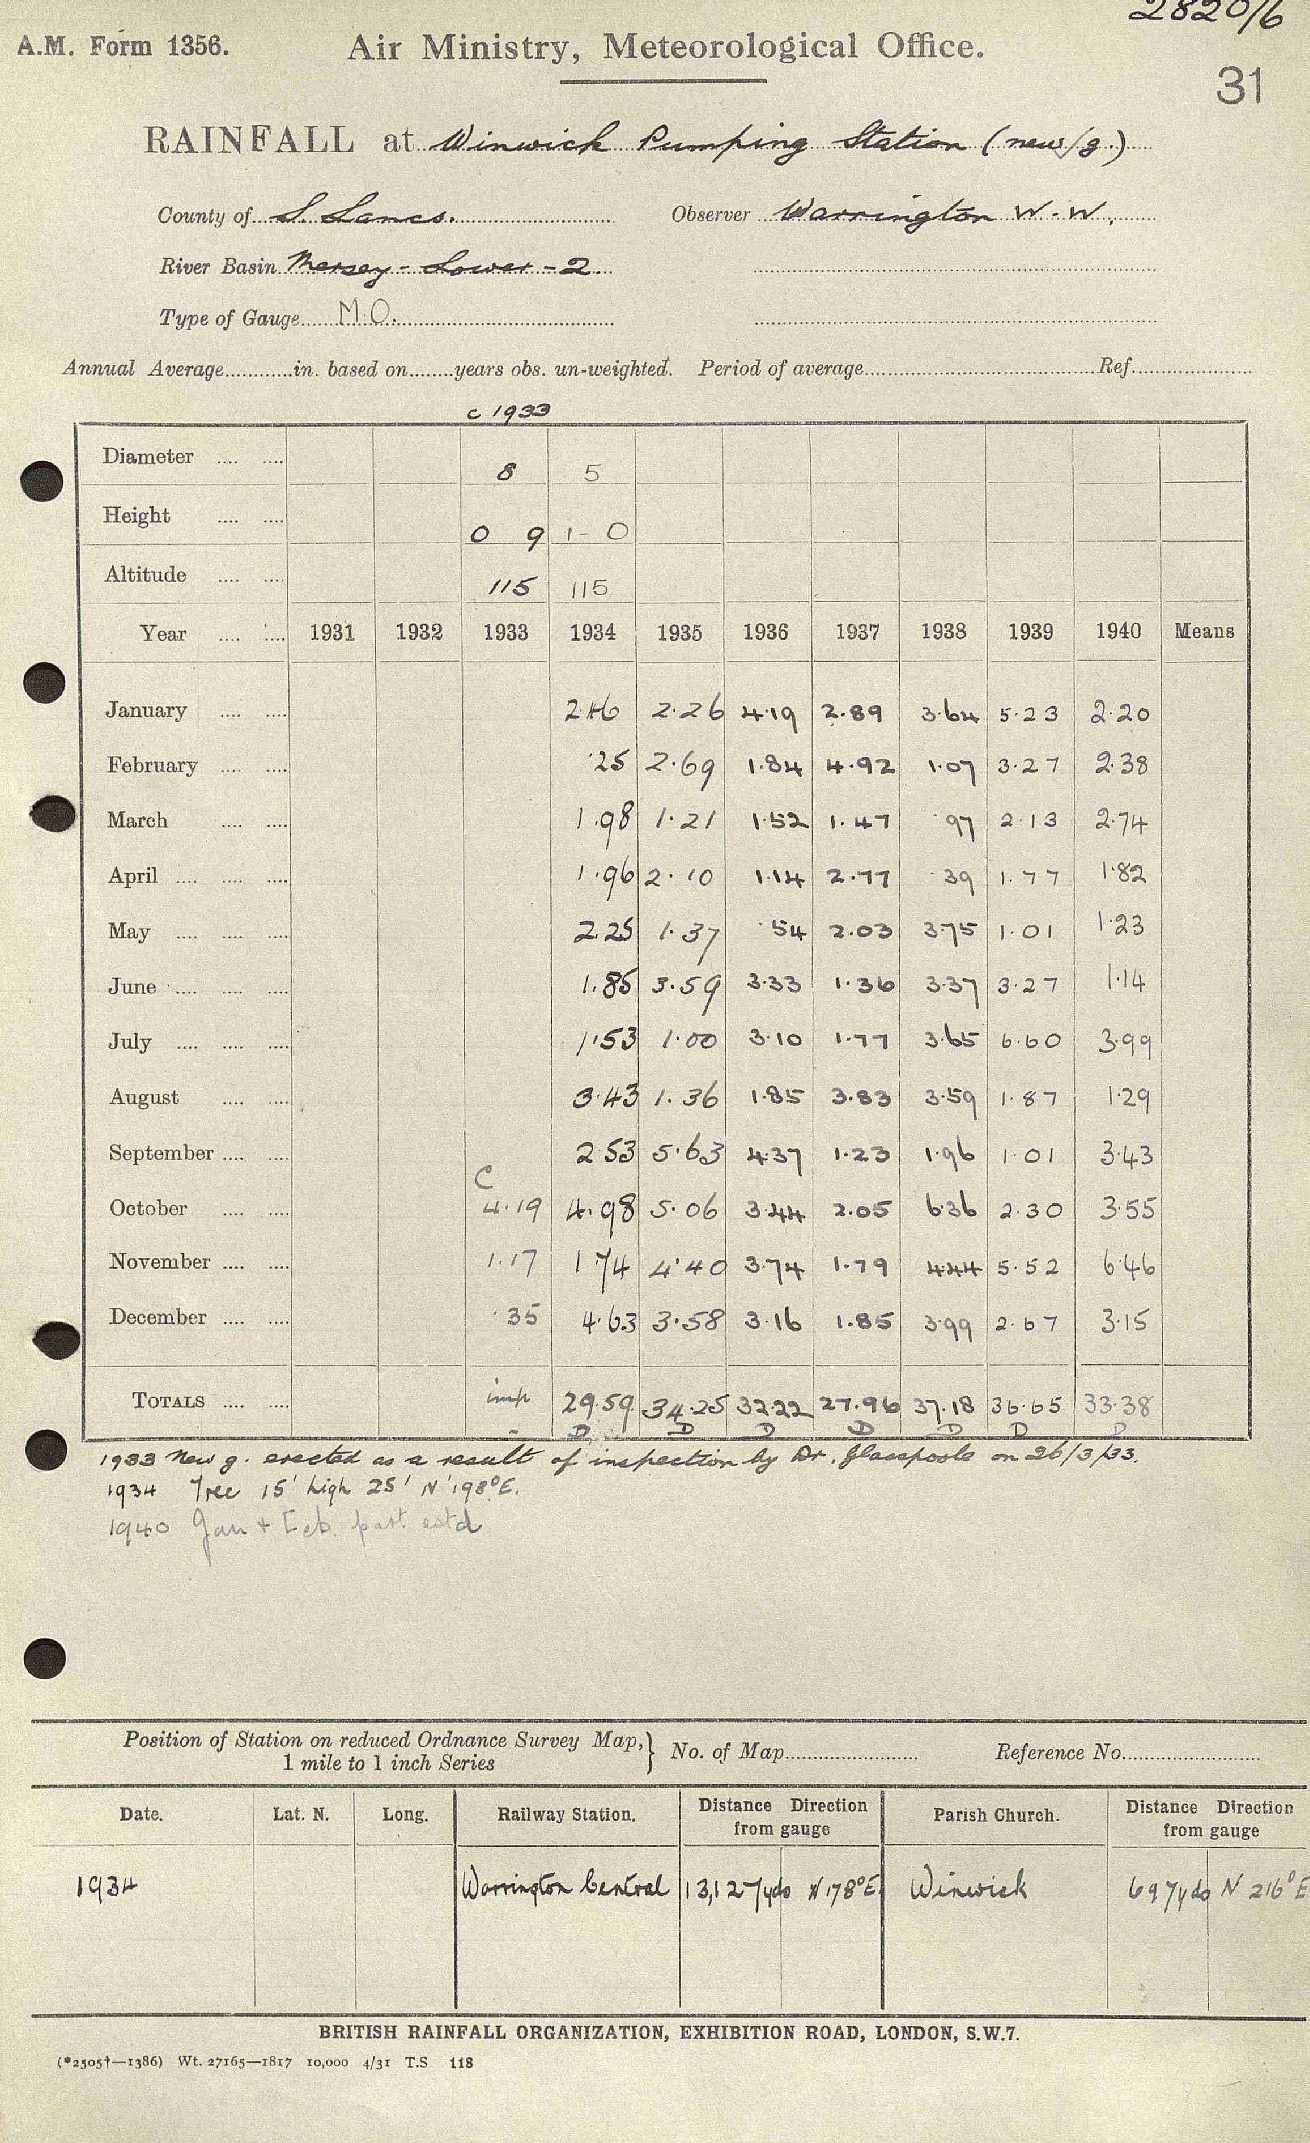 2820/6
A.M. Form 1356. Air Ministry, Meteorological Office.
31
RAINFALL at Winwick Pumping Station (new/g.)
County of S. Lancs. Observer Warrington W.W.
River Basin Mersey - Lower - 2.
Type of Gauge M.O.
Annual Average in. based on years obs. un-weighted. Period of average Ref.
c 1933
Diameter 8 5
Height 0 9 1-0
Altitude 115 115
Year 1931 1932 1933 1934 1935 1936 1937 1938 1939 1940 Means
January 2.46 2.26 4.19 2.89 3.64 5.23 2.20
February .25 2.69 1.84 4.92 1.07 3.27 2.38
March 1.98 1.21 1.52 1.47 .97 2.13 2.74
April 1.96 2.10 1.14 2.77 .39 1.77 1.82
May 2.25 1.37 .54 2.03 3.75 1.01 1.23
June 1.85 3.59 3.33 1.36 3.37 3.27 1.14
July 1.53 1.00 3.10 1.77 3.65 6.60 3.99
August 3.43 1.36 1.85 3.83 3.59 1.87 1.29
September 2.53 5.63 4.37 1.23 1.96 1.01 3.43
C
October 4.19 4.98 5.06 3.44 2.05 6.36 2.30 3.55
November 1.17 1.74 4.40 3.74 1.79 4.44 5.52 6.46
December .35 4.63 3.58 3.16 1.85 3.99 2.67 3.15
TOTALS imp 29.59 34.25 32.22 27.96 37.18 36.65 33.38
D D D D D D D
1933 New g. erected as a result of inspection by Dr. Glasspoole on 26/3/33.
1934 Tree 15' high 25' N 198°E.
1940 Jan + Feb. part est'd
Position of Station on reduced Ordnance Survey Map, 1 mile to 1 inch Series } No. of Map Reference No.
Date. Lat. N. Long. Railway Station. Distance Direction from gauge Parish Church. Distance Direction from gauge
1934 Warrington Central 13,127yds N 178°E. Winwick 697yds N 216°E
BRITISH RAINFALL ORGANIZATION, EXHIBITION ROAD, LONDON, S.W.7.
(*2505†—1386) Wt. 27165—1817 10,000 4/31 T.S 118